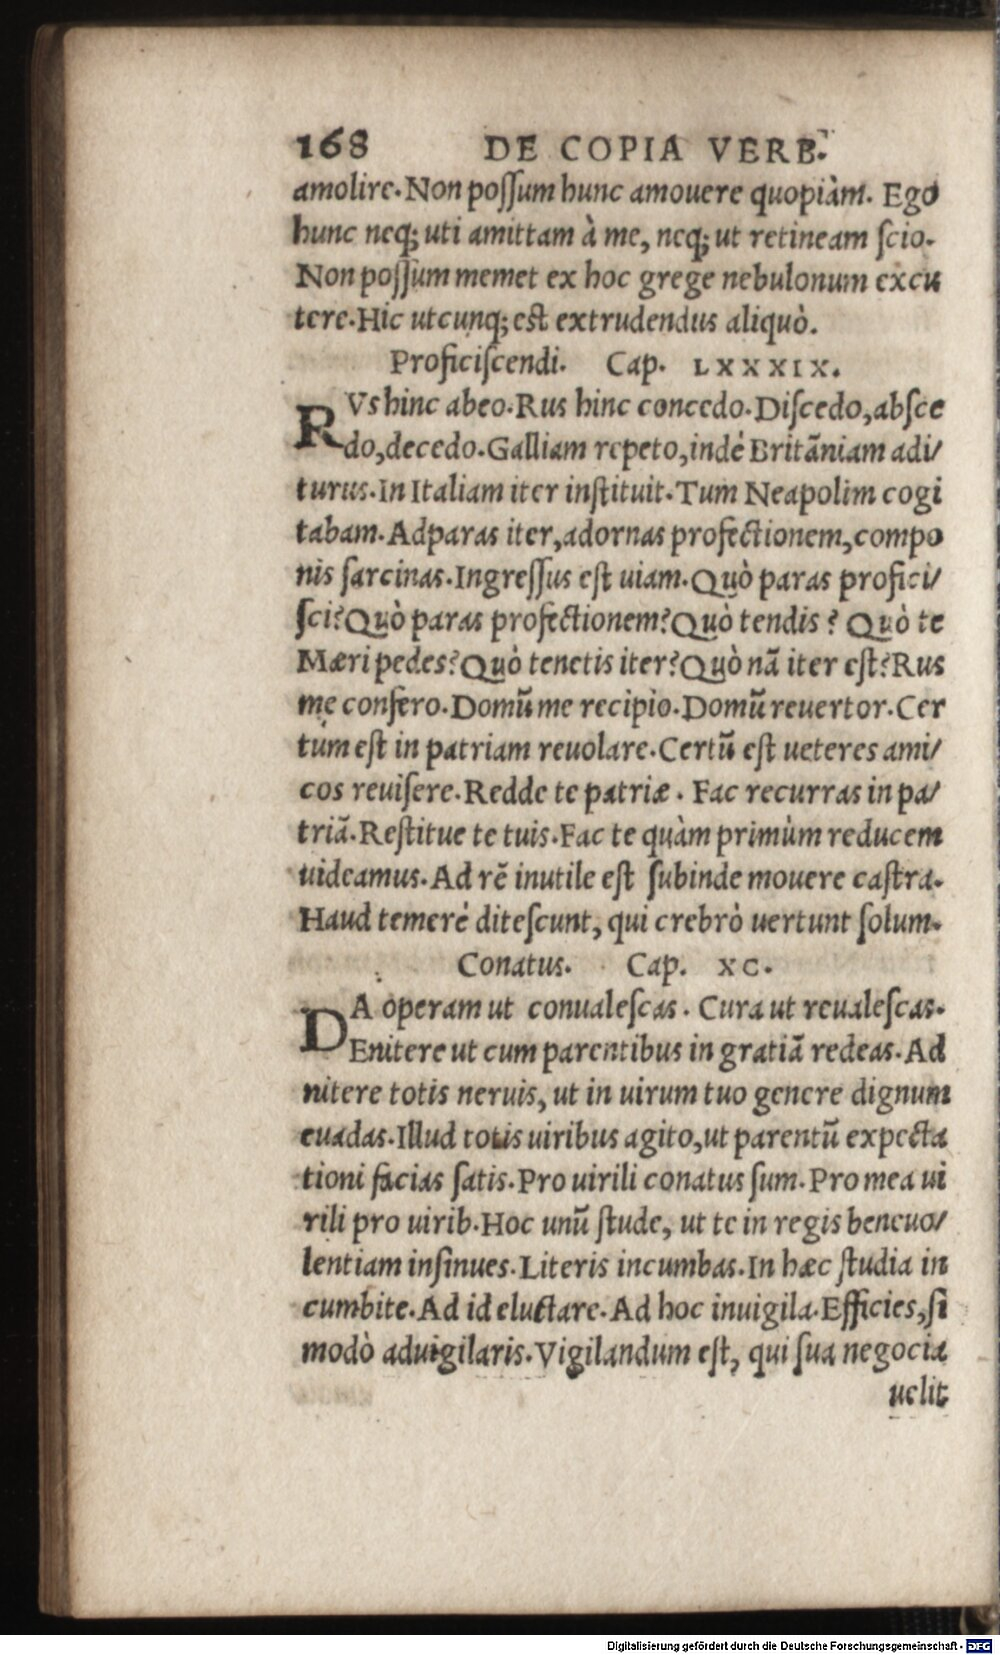 168 DE COPIA VERB.
amolire. Non poſſum hunc amouere quopiàm. Ego
hunc neq; uti amittam à me, neq; ut retineam ſcio.
Non poſſum memet ex hoc grege nebulonum excu
tere. Hic utcunq; est extrudendus aliquò.
Proficiſcendi. Cap. LXXXIX.
RVs hinc abeo. Rus hinc concedo. Diſcedo, abſce
do, decedo. Galliam repeto, indé Britāniam adi/
turus. In Italiam iter inſtituit. Tum Neapolim cogi
tabam. Adparas iter, adornas profectionem, compo
nis ſarcinas. Ingreſſus eſt uiam. Quò paras profici/
ſci? Quò paras profectionem? Quò tendis? Quò te
Mæri pedes? Quò tenetis iter? Quò nā iter eſt? Rus
me confero. Domū me recipio. Domū reuertor. Cer
tum eſt in patriam reuolare. Certū eſt ueteres ami/
cos reuiſere. Redde te patriæ. Fac recurras in pa/
triā. Reſtitue te tuis. Fac te quàm primùm reducem
uideamus. Ad rē inutile eſt ſubinde mouere caſtra.
Haud temeré diteſcunt, qui crebrò uertunt ſolum.
Conatus. Cap. XC.
DA operam ut conualeſcas. Cura ut reualeſcas.
Enitere ut cum parentibus in gratiā redeas. Ad
nitere totis neruis, ut in uirum tuo genere dignum
euadas. Illud totis uiribus agito, ut parentū expecta
tioni facias ſatis. Pro uirili conatus ſum. Pro mea ui
rili pro uirib. Hoc unū ſtude, ut te in regis beneuo/
lentiam inſinues. Literis incumbas. In hæc ſtudia in
cumbite. Ad id eluctare. Ad hoc inuigila. Efficies, ſi
modò aduigilaris. Vigilandum eſt, qui ſua negocia
uelit
Digitalisierung gefördert durch die Deutsche Forschungsgemeinschaft - DFG